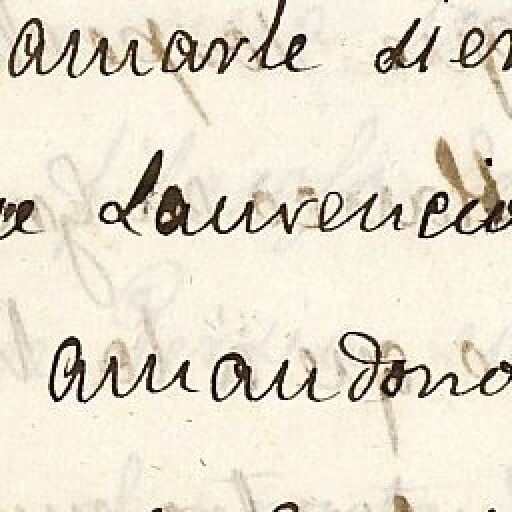 amarle sien
Laurencio
amandono